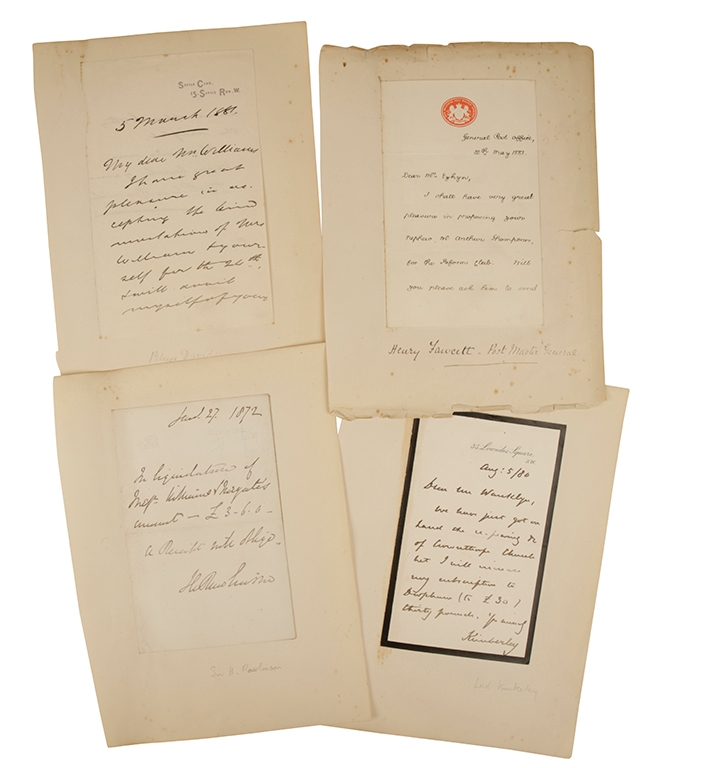 Savile Club,
15, Savile Row. W.
5 March 1881.
My dear Mr. Williams
I have great
pleasure in ac-
cepting the kind
invitation of Mrs
Williams & your-
self for the 26th.
I will avail
myself of your
General Post Office,
May 1881.
Dear Mr.
I shall have very great
pleasure in proposing your
nephew, Mr Arthur Thompson,
for the Reform Club. Will
you please ask him to send
Henry Fawcett - Post Master General
Jan. 27. 1872
In liquidation of
Messrs Williams & Norgate's
account - £3-6.0-
a Receipt will oblige.
Sir H. Rawlinson.
Lowndes Square,
S.W.
Aug: 5/80
Dear Mr Wanklyn,
We have just got in
hand the
of Church
but I will
my subscription to
(to £30)
thirty pounds. Yrs
Kimberley
Lord Kimberley